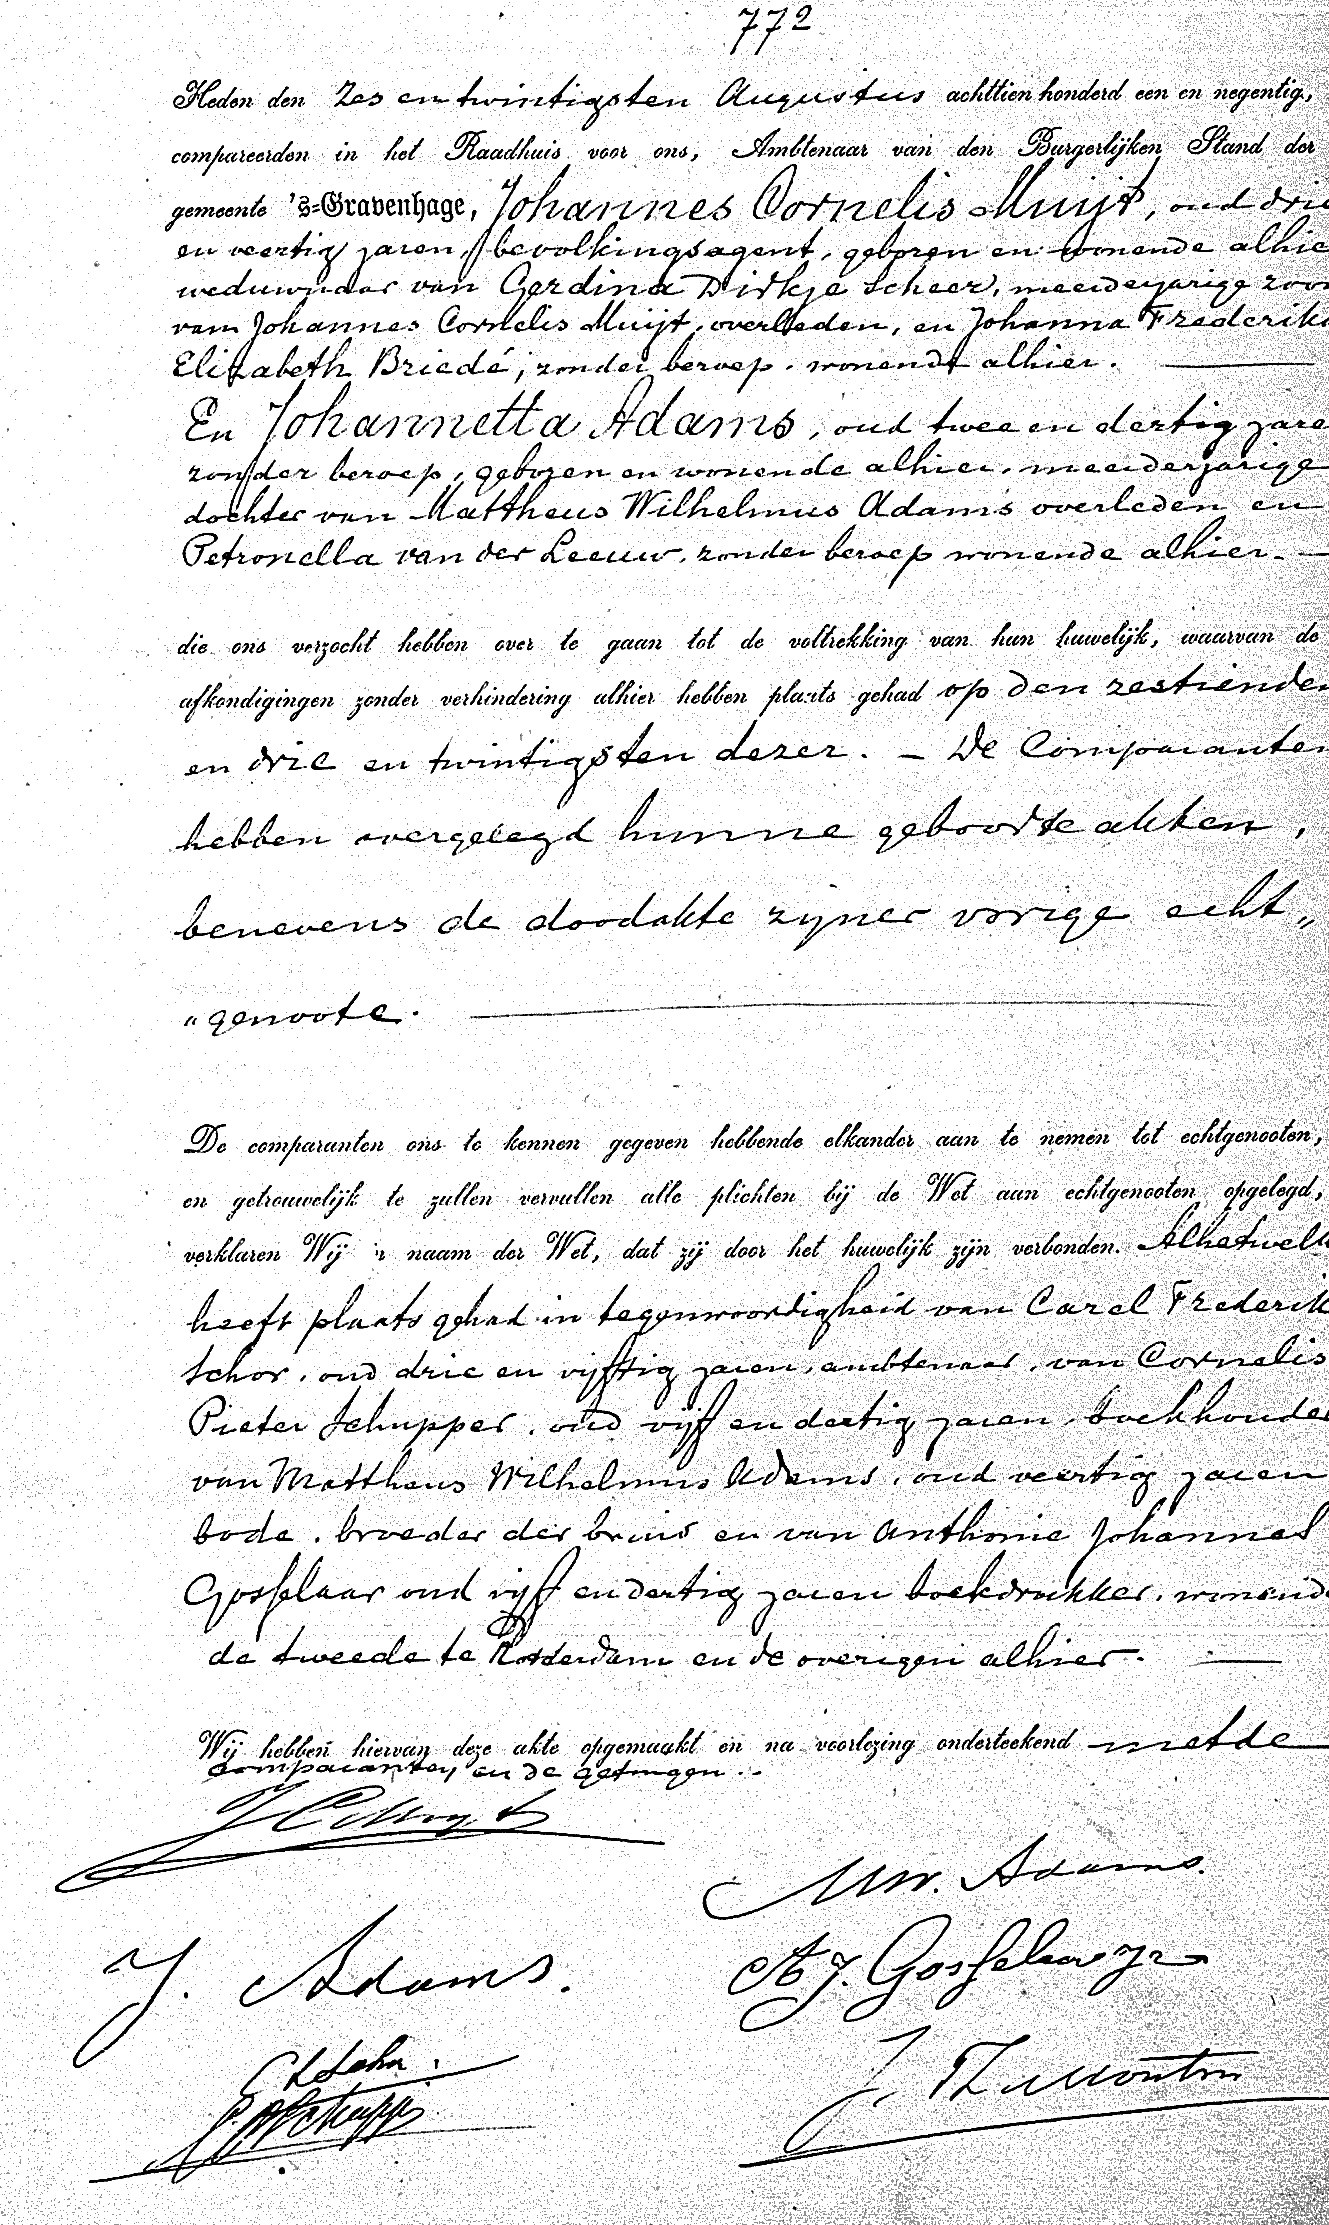 772
Heden den Zes en twintigsten Augustus achttien honderd een en negentig,
compareerden in het Raadhuis voor ons, Ambtenaar van den Burgerlijken Stand der
gemeente 's=Gravenhage, Johannes Cornelis Muijt, oud drie
en veertig jaren, bevolkingsagent, geboren en wonende alhie
weduwnaar van Gerdina Dirkje Scheer, meerderjarige zoon
van Johannes Cornelis Muijt, overleden, en Johanna Frederik
Elizabeth Briedé, zonder beroep, wonende alhier.
En Johannetta Adams, oud twee en dertig jare
zonder beroep, geboren en wonende alhier, meerderjarige
dochter van Mattheus Wilhelmus Adams overleden en
Petronella van der Leeuw, zonder beroep wonende alhier.
die ons verzocht hebben over te gaan tot de voltrekking van hun huwelijk, waarvan de
afkondigingen zonder verhindering alhier hebben plaats gehad op den zestienden
en drie en twintigsten dezer. — De Comparanten
hebben overgelegd hunne geboorte akten,
benevens de doodakte zijner vorige echt„
„genoote.
De comparanten ons te kennen gegeven hebbende elkander aan te nemen tot echtgenooten,
en getrouwelijk te zullen vervullen alle plichten bij de Wet aan echtgenooten opgelegd,
verklaren Wij in naam der Wet, dat zij door het huwelijk zijn verbonden. Alhetwelk
heeft plaats gehad in tegenwoordigheid van Carel Frederik
Schor, oud drie en vijftig jaren, ambtenaar, van Cornelis
Pieter Schupper, oud vijf en dertig jaren, boekhouder
van Mattheus Wilhelmus Adams, oud veertig jaren
bode, broeder der bruid en van Anthonie Johannes
Gosselaar oud vijf en dertig jaren boekdrukker, wonende
de tweede te Rotterdam en de overigen alhier.
Wij hebben hiervan deze akte opgemaakt en na voorlezing onderteekend met de
comparanten en de getuigen.
JC Muijt
MW. Adams.
J. Adams.
A.J. Gosselaar Jr
CF Schor.
CP Schupper